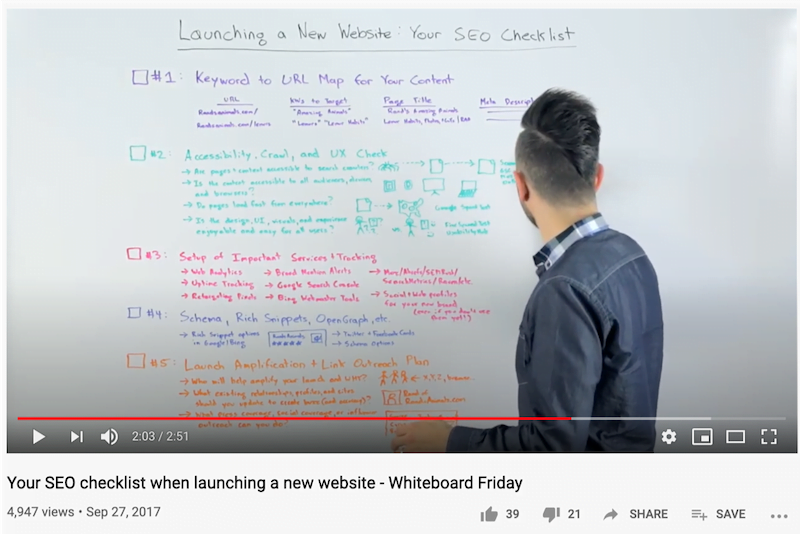 Launching a New Website: Your SEO Checklist
#1: Keyword to URL Map for Your Content
URL KWs to Target Page Title Meta Descrip
Randsanimals.com/ "Amazing Animals" Rand's Amazing Animals
Randsanimals.com/lemurs "Lemurs" "Lemur Habits" Lemur Habits, Photos,
#2: Accessibility, Crawl, and UX Check
→ Are pages + content accessible to search crawlers?
→ Is the content accessible to all audiences, devices
and browsers?
→ Do pages load fast from everywhere?
Google Speed Test
→ Is the design, UI, visuals, and experience
enjoyable and easy for all users?
vs
Five Second Test
UsabilityHub
#3: Setup of Important Services + Tracking
→ Web Analytics → Brand Mention Alerts
→ Uptime Tracking → Google Search Console
→ Retargeting Pixels → Bing Webmaster Tools
→ Moz/Ahrefs/SEMRush/
SearchMetrics/
→ Social + Web profiles
for your new brand
(even if you don't use
them yet!)
#4: Schema, Rich Snippets, OpenGraph, etc.
→ Rich Snippet options
in Google/Bing
→ Twitter + Facebook Cards
→ Schema Options
#5: Launch Amplification + Link Outreach Plan
→ Who will help amplify your launch and WHY?
← X, Y, Z, because
→ What existing relationships, profiles, and sites
should you update to create buzz (and accuracy)?
Rand at
RandsAnimals.com
→ What press coverage, social coverage, or influencer
outreach can you do?
2:03 / 2:51
Your SEO checklist when launching a new website - Whiteboard Friday
4,947 views • Sep 27, 2017
39 21 SHARE SAVE